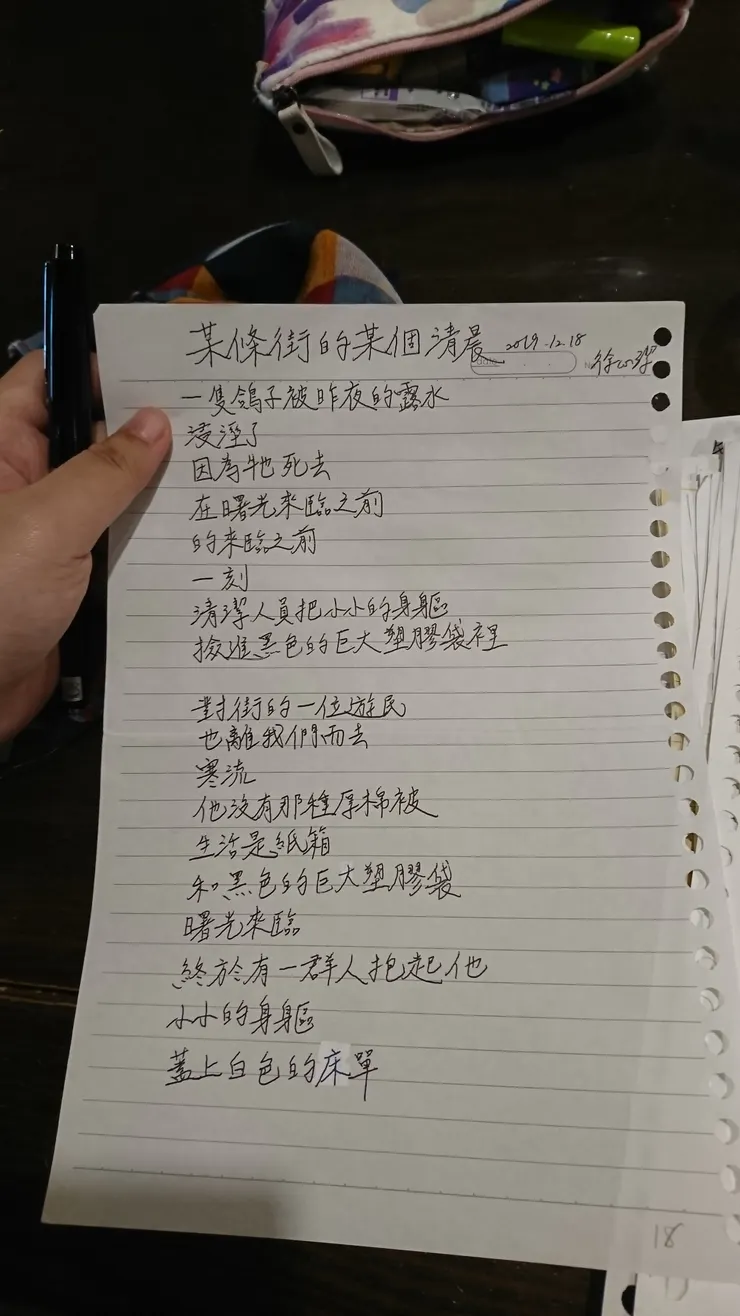 某條街的某個清晨 2019.12.18 徐心潔
一隻鴿子被昨夜的露水
浸溼了
因為牠死去
在曙光來臨之前
的來臨之前
一刻
清潔人員把小小的身軀
撿進黑色的巨大塑膠袋裡
對街的一位遊民
也離我們而去
寒流
他沒有那種厚棉被
生活是紙箱
和黑色的巨大塑膠袋
曙光來臨
終於有一群人抱起他
小小的身軀
蓋上白色的床單
18